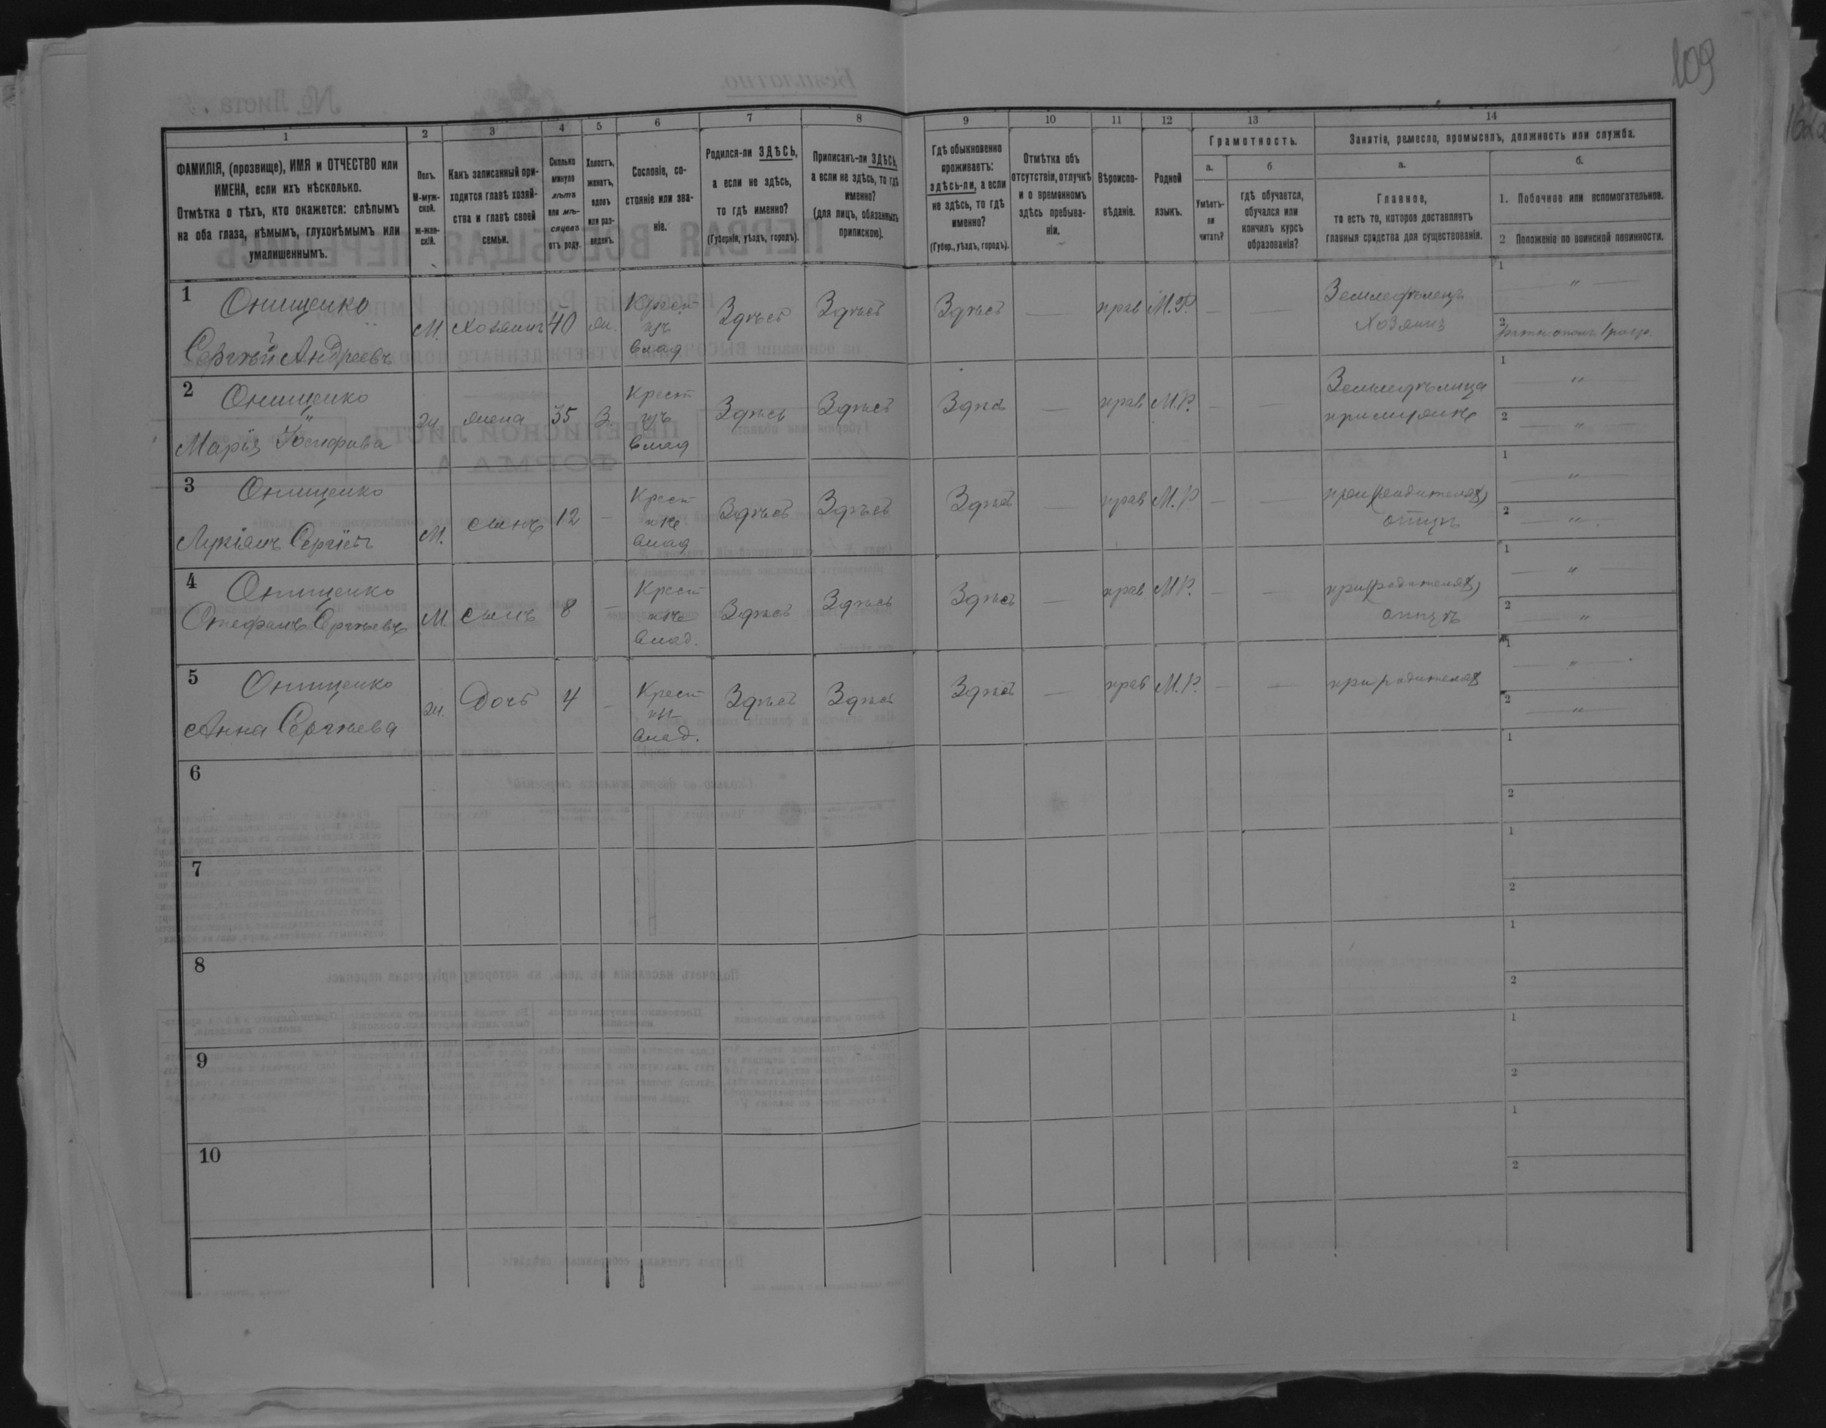 109
1
2
3
4
5
6
7
8
9
10
11
12
13
14
ФАМИЛІЯ, (прозвище), ИМЯ и ОТЧЕСТВО или
ИМЕНА, если ихъ нѣсколько.
Отмѣтка о тѣхъ, кто окажется: слѣпымъ
на оба глаза, нѣмымъ, глухонѣмымъ или
умалишеннымъ.
Полъ.
М-муж-
ской.
Ж-жен-
скій.
Какъ записанный при-
ходится главѣ хозяй-
ства и главѣ своей
семьи.
Сколько
минуло
лѣтъ
или мѣ-
сяцевъ
отъ роду.
Холостъ,
женатъ,
вдовъ
или раз-
веденъ.
Сословіе, со-
стояніе или зва-
ніе.
Родился-ли ЗДѢСЬ,
а если не здѣсь,
то гдѣ именно?
(Губернія, уѣздъ, городъ).
Приписанъ-ли ЗДѢСЬ,
а если не здѣсь, то гдѣ
именно?
(для лицъ, обязанныхъ
припискою).
Гдѣ обыкновенно
проживаетъ:
здѣсь-ли, а если
не здѣсь, то гдѣ
именно?
(Губер., уѣздъ, городъ).
Отмѣтка объ
отсутствіи, отлучкѣ
и о временномъ
здѣсь пребыва-
ніи.
Вѣроиспо-
вѣданіе.
Родной
языкъ.
Грамотность.
а.
б.
Умѣетъ-
ли
читать?
гдѣ обучается,
обучался или
кончилъ курсъ
образованія?
Занятіе, ремесло, промыселъ, должность или служба.
а.
б.
Главное,
то есть то, которое доставляетъ
главныя средства для существованія.
1. Побочное или вспомогательное.
2 Положеніе по воинской повинности.
1 Онищенко
Сергѣй Андреевъ
М. хозяинъ 40 жн. Крест
влад
Здѣсь Здѣсь Здѣсь — прав М.Р. — —
Земледѣлецъ
хозяинъ
1 "
2
2 Онищенко
Марія
ж жена 35 З. Крест
влад
Здѣсь Здѣсь Здѣсь — прав М.Р. — —
1 "
2 "
3 Онищенко
М. сынъ 12 — Крест
влад
Здѣсь Здѣсь Здѣсь — прав М.Р. — —
1 "
2 "
4 Онищенко
Стефанъ Сергѣевъ
М. сынъ 8 — Крест
влад.
Здѣсь Здѣсь Здѣсь — прав М.Р. — —
1 "
2 "
5 Онищенко
Анна Сергѣева
ж. дочь 4 — Крест
влад.
Здѣсь Здѣсь Здѣсь — прав М.Р. — —
при родителях
1 "
2 "
6
1
2
7
1
2
8
1
2
9
1
2
10
1
2